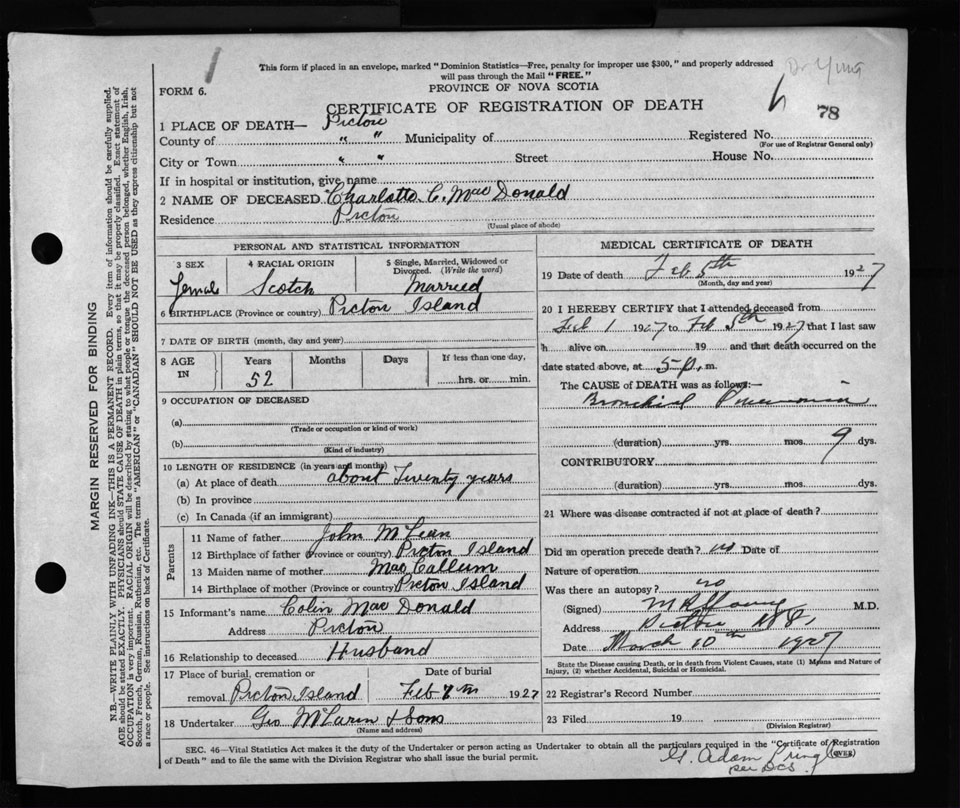 This form if placed in an envelope, marked "Dominion Statistics—Free, penalty for improper use $300," and properly addressed
will pass through the Mail "FREE."
PROVINCE OF NOVA SCOTIA
FORM 6.
CERTIFICATE OF REGISTRATION OF DEATH
78
1 PLACE OF DEATH— Pictou
County of " " Municipality of Registered No.
(For use of Registrar General only)
City or Town " " Street House No.
If in hospital or institution, give name
2 NAME OF DECEASED Charlotte C. MacDonald
Residence Pictou
(Usual place of abode)
PERSONAL AND STATISTICAL INFORMATION
3 SEX 4 RACIAL ORIGIN 5 Single, Married, Widowed or
Divorced. (Write the word)
Female Scotch Married
6 BIRTHPLACE (Province or country) Pictou Island
7 DATE OF BIRTH (month, day and year)
8 AGE IN Years Months Days If less than one day,
52 hrs. or min.
9 OCCUPATION OF DECEASED
(a)
(Trade or occupation or kind of work)
(b)
(Kind of industry)
10 LENGTH OF RESIDENCE (in years and months)
(a) At place of death about Twenty years
(b) In province
(c) In Canada (if an immigrant)
Parents
11 Name of father John McLean
12 Birthplace of father (Province or country) Picton Island
13 Maiden name of mother MacCallum
14 Birthplace of mother (Province or country) Picton Island
15 Informant's name Colin MacDonald
Address Pictou
16 Relationship to deceased Husband
17 Place of burial, cremation or Date of burial
removal Picton Island Feb 7th 1927
18 Undertaker Geo McLaren & Sons
(Name and address)
MEDICAL CERTIFICATE OF DEATH
19 Date of death Feb 5th 1927
(Month, day and year)
20 I HEREBY CERTIFY that I attended deceased from
Feb 1 1927 to Feb 5th 1927 that I last saw
h alive on 19 and that death occurred on
date stated above, at 5 p. m.
The CAUSE of DEATH was as follows:—
Bronchial Pneumonia
(duration) yrs. mos. 9 dys.
CONTRIBUTORY
(duration) yrs. mos. dys.
21 Where was disease contracted if not at place of death?
Did an operation precede death? no Date of
Nature of operation
Was there an autopsy? no
(Signed) Young M.D.
Address Pictou N.S.
Date March 10th 1927
State the Disease causing Death, or in death from Violent Causes, state (1) Means and Nature of
Injury, (2) whether Accidental, Suicidal or Homicidal.
22 Registrar's Record Number
23 Filed 19
(Division Registrar)
SEC. 46—Vital Statistics Act makes it the duty of the Undertaker or person acting as Undertaker to obtain all the particulars required in the "Certificate of Registration
of Death" and to file the same with the Division Registrar who shall issue the burial permit. (OVER)
G. Adam Pringle
per
MARGIN RESERVED FOR BINDING
N.B.—WRITE PLAINLY WITH UNFADING INK—THIS IS A PERMANENT RECORD. Every item of information should be carefully supplied.
AGE should be stated EXACTLY. PHYSICIANS should STATE CAUSE OF DEATH in plain terms, so that it may be properly classified. Exact statement of
OCCUPATION is very important. RACIAL ORIGIN will be described by stating to what people or tongue the deceased person belonged, whether English, Irish,
Scotch, French, German, Russian, Ruthenian, etc. The terms "AMERICAN" or "CANADIAN" SHOULD NOT BE USED as they express citizenship but not
a race or people. See instructions on back of Certificate.